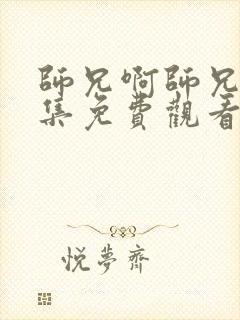 師兄啊師兄
集免費觀看
悦夢齋